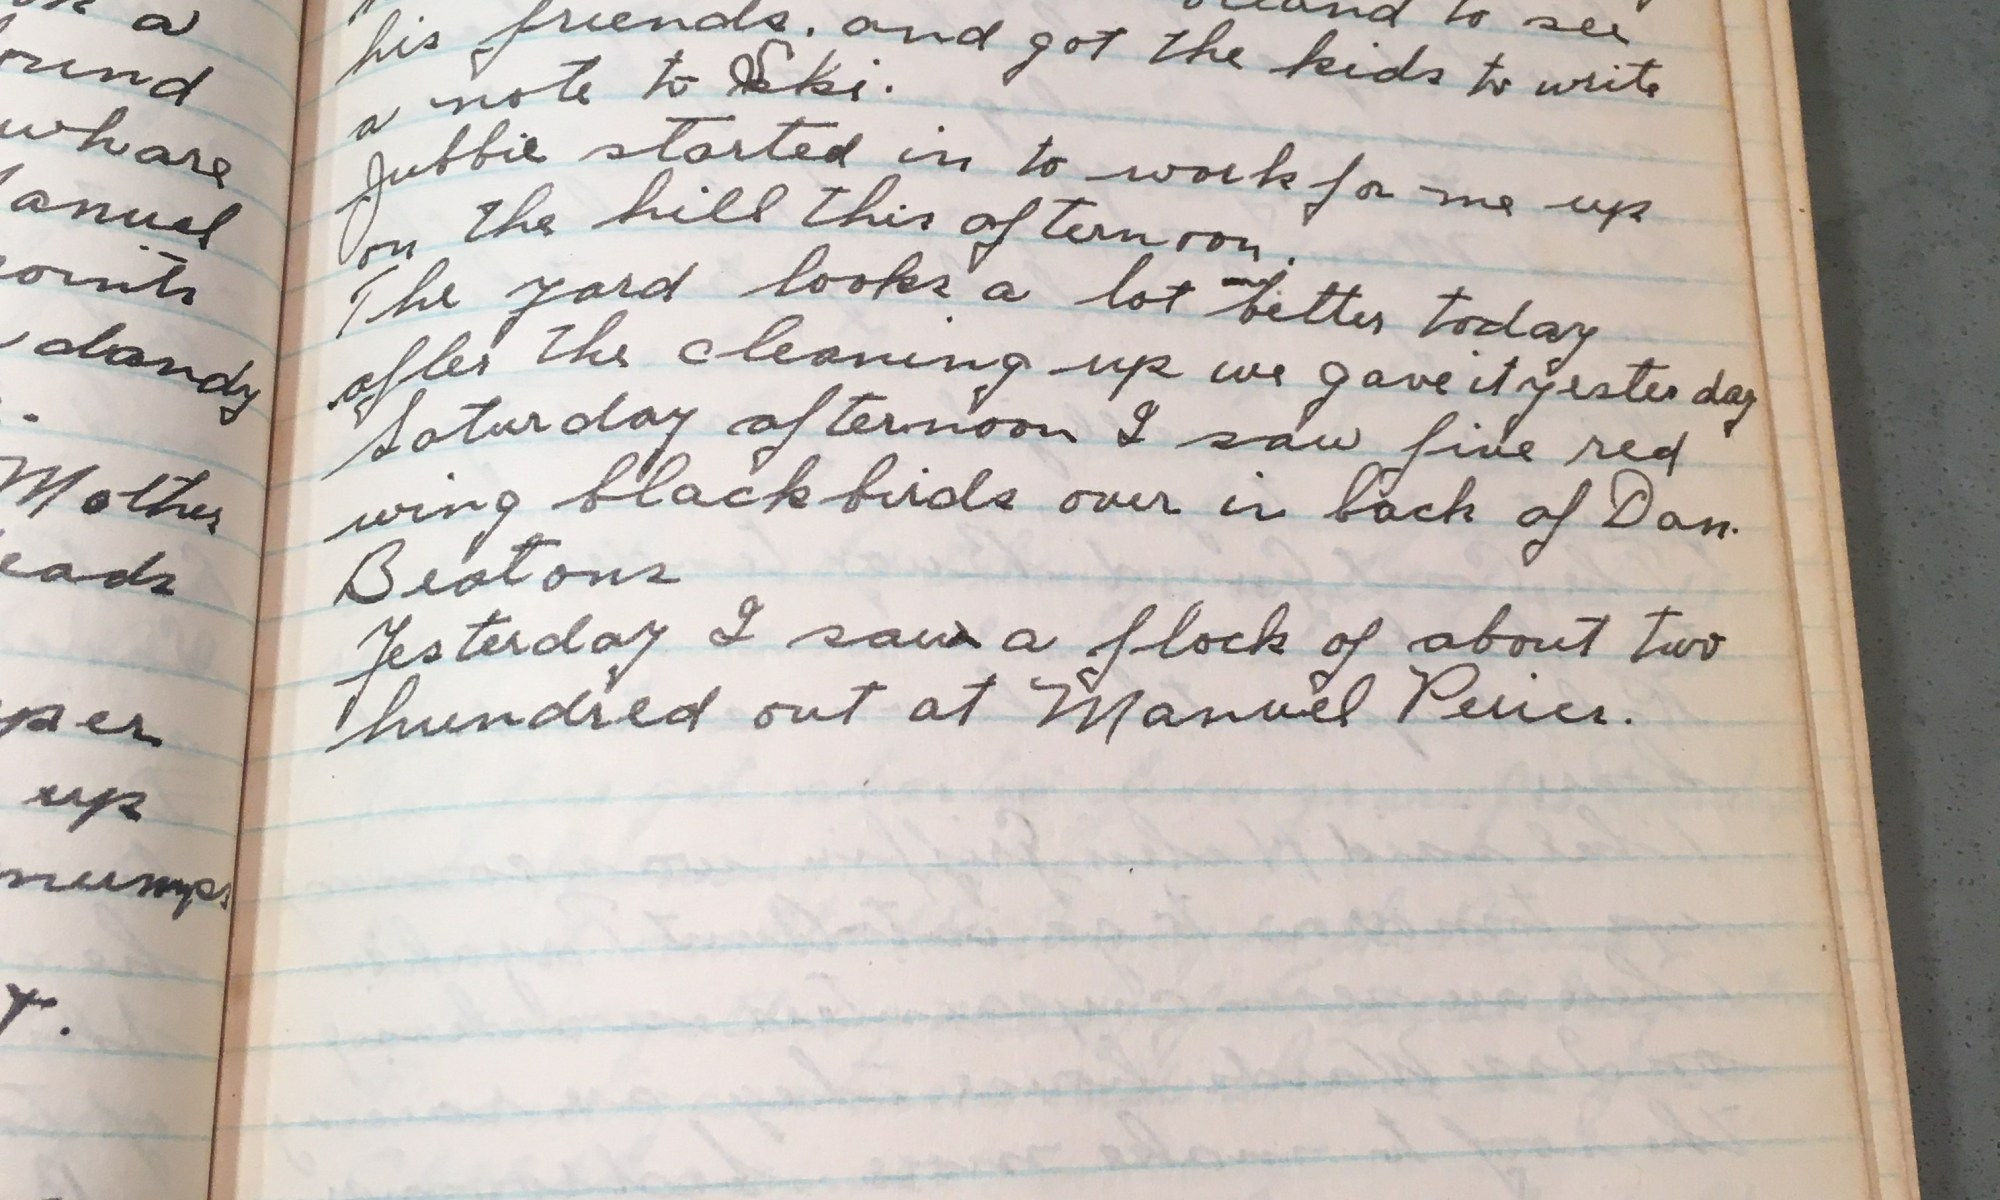 a
ound
whare
anuel
dandy
Mother
eads
per
up
mumps
to see
his friends. and got the kids to write
a note to Ski.
Jubbie started in to work for me up
on the hill this afternoon.
The yard looks a lot better today
after the cleaning up we gave it yesterday
Saturday afternoon I saw five red
wing blackbirds over in back of Dan.
Beatons
Yesterday I saw a flock of about two
hundred out at Manuel